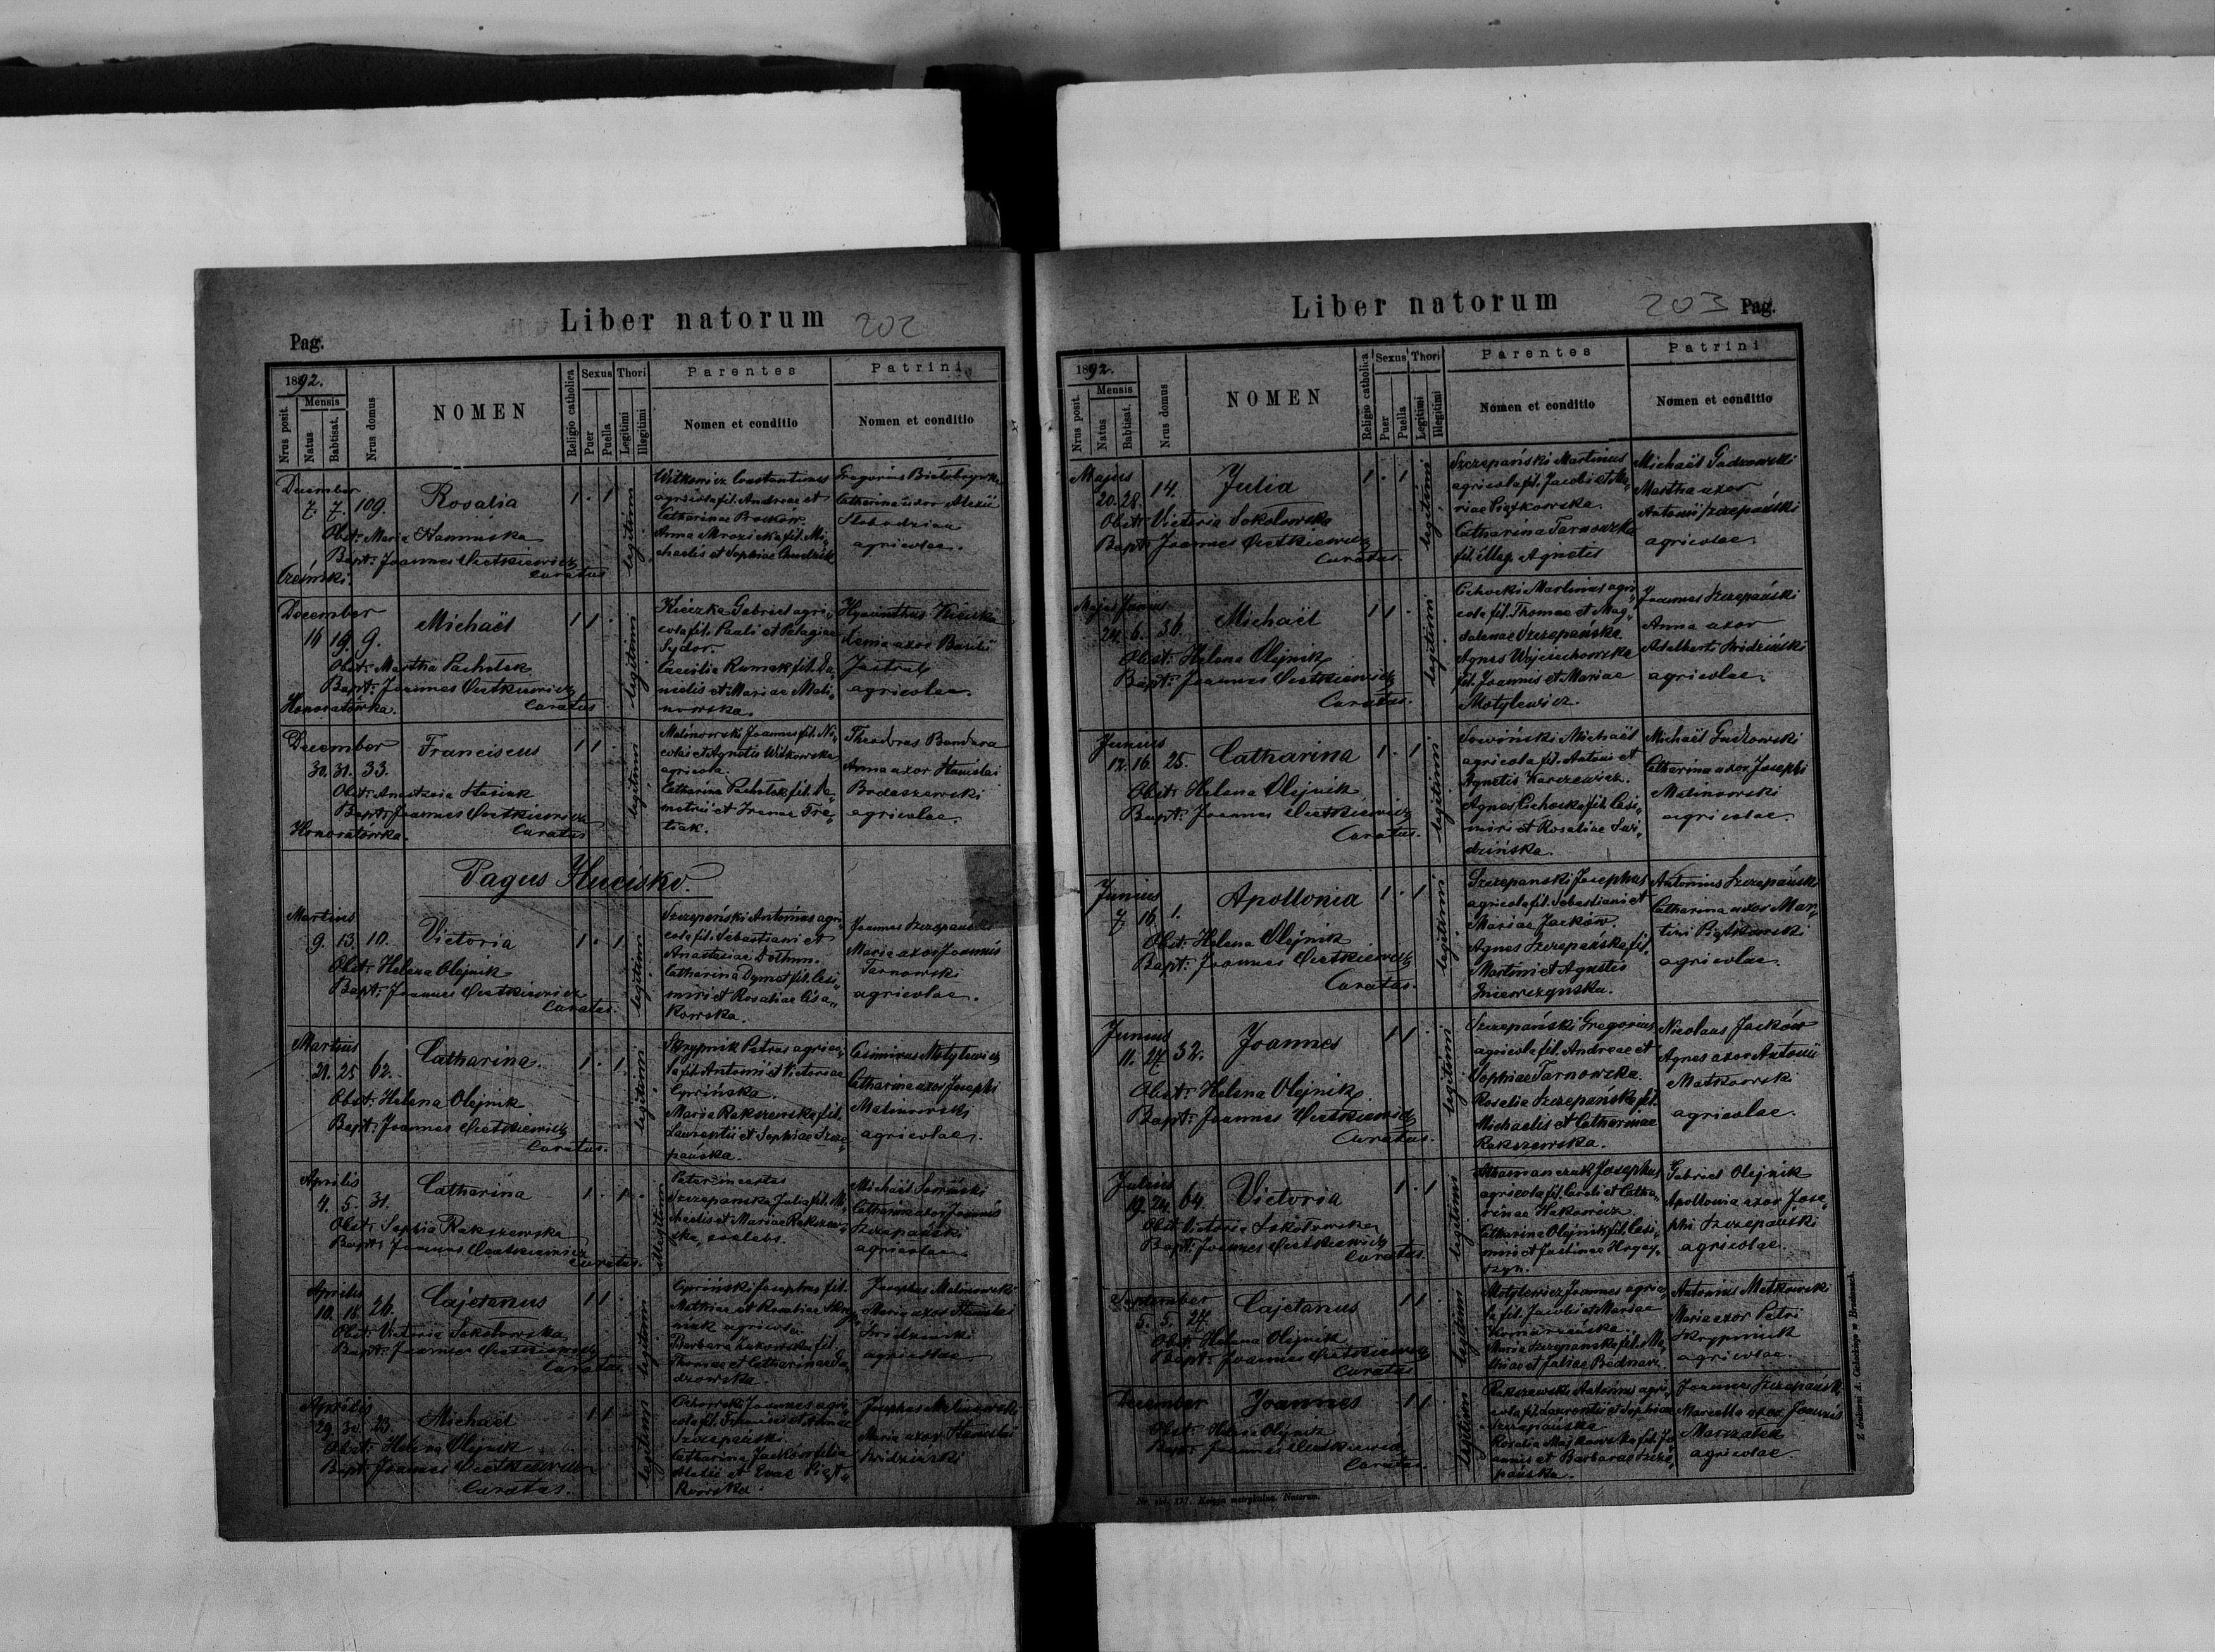 Liber natorum 202
Pag.
1892.
Nrus posit.
Mensis
Natus
Babtisat.
Nrus domus
NOMEN
Religio catholica
Sexus
Puer
Puella
Thori
Legitimi
Illegitimi
Parentes
Nomen et conditio
Patrini
Nomen et conditio
December
7. 7. 109. Rosalia 1 . 1
legitimi
Obst: Maria Kaminska
Bapt: Joannes Cietkiewicz
Curatus
Witkowicz Constantinus
agricola fil. Andreae et
Catharinae
Anna Mrozicka fil. Mi„
chaelis et Sophiae
Gregorius
Catharina uxor Alexii
Slobodzian
agricolae.
December
16 19. 9. Michaël 1 1 .
legitimi
Obst: Martha Pacholek
Bapt: Joannes Cietkiewicz
Honoratówka. Curatus
Kiczka Gabriel agri„
cola fil. Pauli et Pelagiae
Sydor.
Caecilia Rumak fil. Da„
nielis et Mariae Mali„
nowska.
Hyacinthus
Xenia uxor Basilii
agricolae.
December
30. 31. 33. Franciscus 1 1 .
legitimi
Obst: Anastasia
Bapt: Joannes Cietkiewicz
Honoratówka. Curatus
Malinowski Joannes fil. Ni„
colai et Agnetis Witkowska
agricola.
Catharina Pacholek fil. De„
metrii et Irenae Tre„
tiak.
Theodorus Bandura
Anna uxor Stanislai
Brodaszewski
agricolae.
Pagus Hucisko.
Martius
9. 13. 10. Victoria 1 . 1
legitimi
Obst: Helena Olejnik
Bapt: Joannes Cietkiewicz
Curatus.
Szczepański Antonius agri„
cola fil. Sebastiani et
Anastasiae
Catharina Dymat fil. Casi„
miri et Rosaliae
kowska.
Joannes Szczepański
Maria uxor Joannis
Tarnowski
agricolae.
Martius
21. 25 62. Catharina. 1 . 1
legitimi
Obst: Helena Olejnik
Bapt: Joannes Cietkiewicz
Curatus.
Skrypnik Petrus agrico„
la fil. Antonii et Victoriae
Cyrińska.
Maria Rakszewska fil.
Laurentii et Sophiae Szcze„
pańska.
Casimirus Motylewicz
Catharina uxor Josephi
Malinowski
agricolae.
Aprilis
4. 5. 31. Catharina 1 . 1 .
illegitimi
Obst: Sophia Rakszewska
Bapt: Joannes Cietkiewicz
Curatus.
Pater incertus
Szczepanska Julia fil. Mi„
chaelis et Mariae Rakszew„
ska, coelebs.
Michaël Sowiński
Catharina uxor Joannis
Szczepański
agricolae
Aprilis
10. 18. 26. Cajetanus 1 1
legitimi
Obst: Victoria Sokolowska
Bapt: Joannes Cietkiewicz
Curatus.
Cyrinski Josephus fil.
Mathiae et Rosaliae Skryp„
niak agricola
Barbara Zukowska fil.
Thomae et Catharinae Ga„
dzowska.
Josephus Malinowski
Maria uxor Stanislai
Swidzinski
agricolae
Aprilis
29. 30. 23. Michaël 1 1
legitimi
Obst: Helena Olejnik
Bapt: Joannes Cietkiewicz
Curatus.
Cichocki Joannes agri„
cola fil. Francisci et Annae
Szczepański.
Catharina Jacków filia
Alexii et Evae Piąt„
kowska.
Josephus Malinowski
Maria uxor Stanislai
Swidziński
Liber natorum 203 Pag.
1892.
Nrus posit.
Mensis
Natus
Babtisat.
Nrus domus
NOMEN
Religio catholica
Sexus
Puer
Puella
Thori
Legitimi
Illegitimi
Parentes
Nomen et conditio
Patrini
Nomen et conditio
Majus
20. 28. 14. Julia 1 . 1
legitimi
Obst: Victoria Sokolowska
Bapt: Joannes Cietkiewicz
Curatus.
Szczepański Martinus
agricola fil. Jacobi et Ma„
riae Piątkowska.
Catharina Tarnowska
fil. illeg. Agnetis
Michaël Gadzowski
Martha uxor
Antonii Szczepański
agricolae.
Majus Junius
24. 6. 36. Michaël 1 1 .
legitimi
Obst: Helena Olejnik
Bapt: Joannes Cietkiewicz
Curatus.
Cichocki Martinus agri„
cola fil. Thomae et Mag„
dalenae Szczepańska.
Agnes Wojciechowska
fil. Joannis et Mariae
Motylewicz.
Joannes Szczepański
Anna uxor
Adalberti Swidziński
agricolae.
Junius
12. 16. 25. Catharina 1 . 1
legitimi
Obst: Helena Olejnik
Bapt: Joannes Cietkiewicz
Curatus.
Sowiński Michaël
agricola fil. Antonii et
Agnetis Karczewicz.
Agnes Cichocka fil. Casi„
miri et Rosaliae Swi„
dzińska.
Michaël Gadzowski
Catharina uxor Josephi
Malinowski
agricolae.
Junius
7 16 1. Apollonia 1 . 1
legitimi
Obst: Helena Olejnik
Bapt: Joannes Cietkiewicz
Curatus.
Szczepanski Josephus
agricola fil. Sebastiani et
Mariae Jacków.
Agnes Szczepańska fil.
Martini et Agnetis
Antonius Szczepański
Catharina uxor Mar„
tini Piątkowski
agricolae.
Junius
11. 27 32. Joannes 1 1
legitimi
Obst: Helena Olejnik
Bapt: Joannes Cietkiewicz
Curatus.
Szczepański Gregorius
agricola fil. Andreae et
Sophiae Tarnowska.
Rosalia Szczepańska fil.
Michaelis et Catharinae
Rakszewska.
Nicolaus Jacków
Agnes uxor Antonii
Matkowski
agricolae.
Julius
19. 24. 64. Victoria 1 . 1
legitimi
Obst: Victoria Sokolowska
Bapt: Joannes Cietkiewicz
Curatus.
Josephus
agricola fil. Caroli et Catha„
rinae
Catharina Olejnik fil. Casi„
miri et Justinae
Gabriel Olejnik
Apollonia uxor Jose„
phi Szczepański
agricolae.
September
5. 5. 24. Cajetanus 1 1
legitimi
Obst: Helena Olejnik
Bapt: Joannes Cietkiewicz
Curatus
Motylewicz Joannes agrico„
la fil. Jacobi et Mariae
Komarzańska.
Maria Szczepanska fil. Ma„
thiae et Juliae Bednarz.
Antonius Matkowski
Maria uxor Petri
Skrypniuk
agricolae.
December Joannes 1 1
legitimi
Obst: Helena Olejnik
Bapt: Joannes Cietkiewicz
Curatus.
Rakszewski Antonius agri„
cola fil. Laurentii et Sophiae
Szczepańska
Rosalia Majkowska fil. Jo„
annis et Barbarae Szcze„
pańska.
Joannes Szczepański
Marcella uxor Joannis
Marszałek
agricolae.